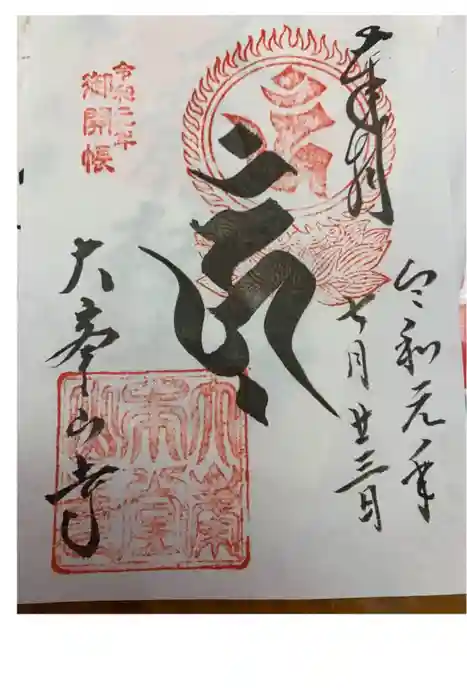 奉拝
令和元年
七月廿三日
令和元年
御開帳
大峯山寺